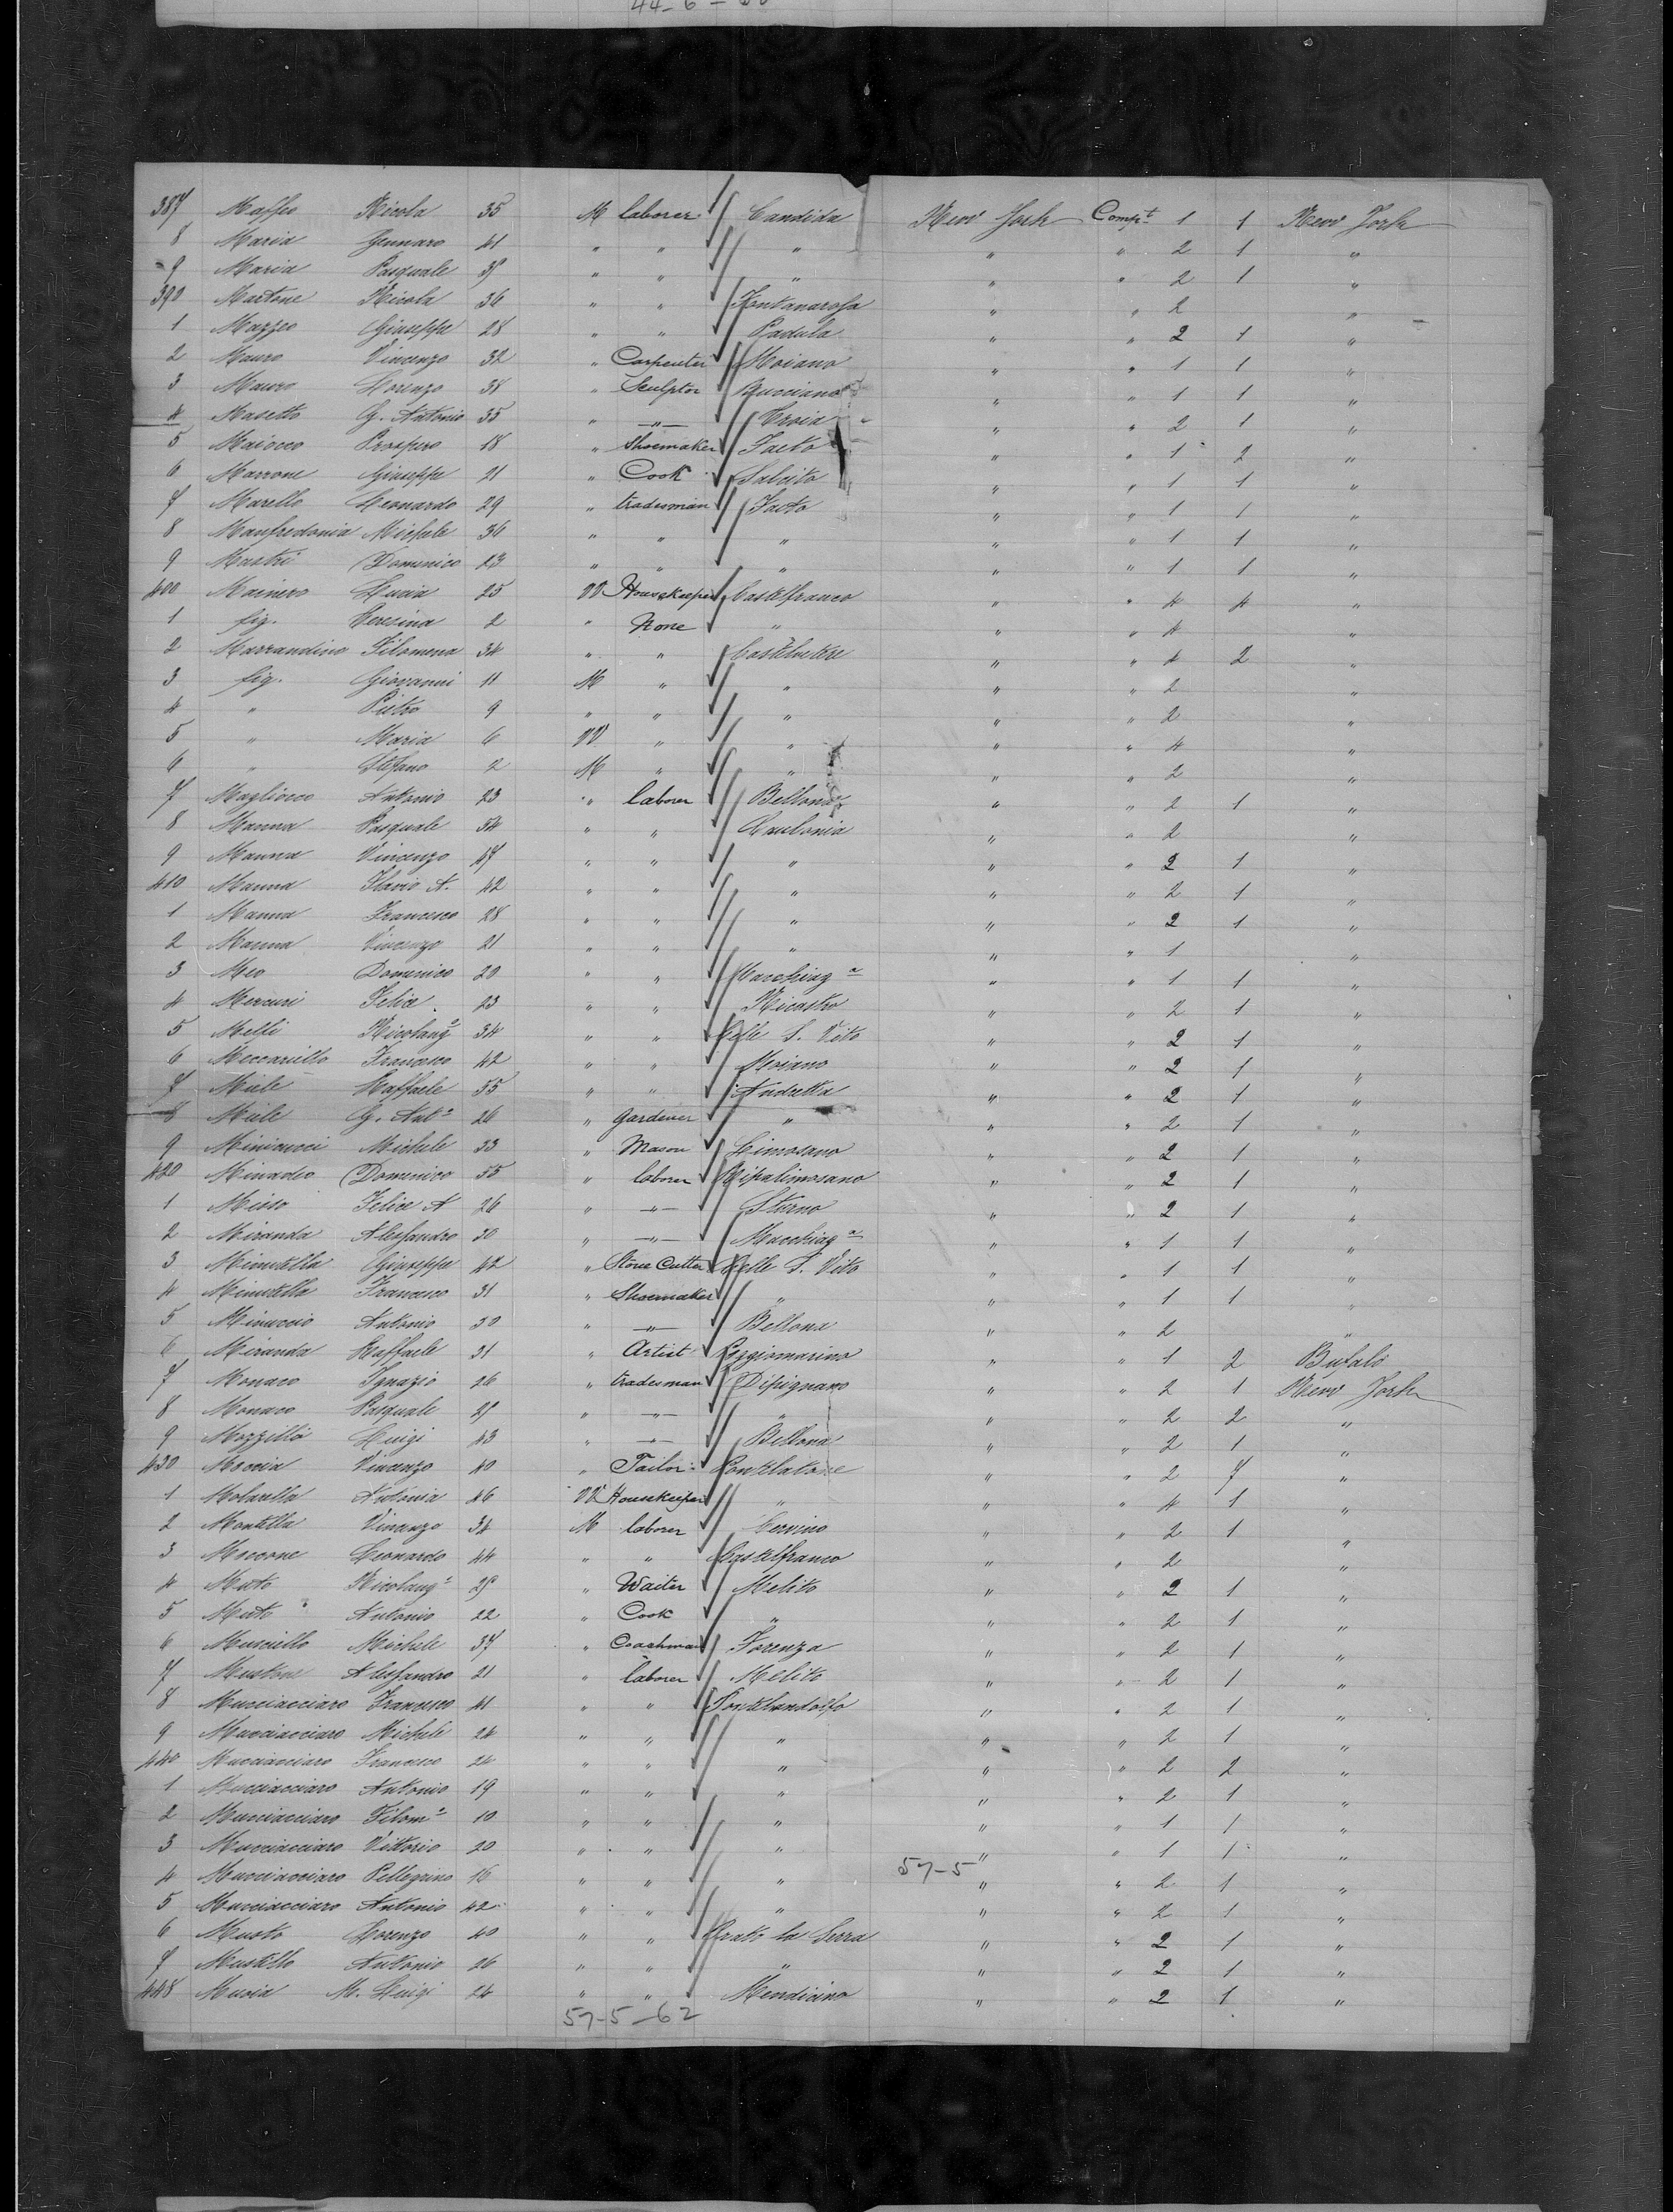 44-6-
387 Maffeo Nicola 35 M laborer Candida New York Compt 1 1 New York
8 Maria Gennaro 41 " " " " " 2 1 "
9 Maria Pasquale " " " " " 2 1 "
390 Martone Nicola 36 " " Fontanarosa " " 2 "
1 Mazzeo Giuseppe 28 " " Padula " " 2 1 "
2 Mauro Vincenzo 32 " Carpenter Moiano " " 1 1 "
3 Mauro Lorenzo 38 " Sculptor Bucciano " " 1 1 "
4 Masetto G. Antonio 35 " " Troia " " 2 1 "
5 Maiocco Prospero 18 " Shoemaker Faeto " " 1 2 "
6 Marrone Giuseppe 21 " Cook Salcito " " 1 1 "
7 Marello Leonardo 29 " tradesman Faeto " " 1 1 "
8 Manfredonia Michele 36 " " " " " 1 1 "
9 Mastri Domenico 23 " " " " " 1 1 "
400 Mainero Lucia 25 W Housekeeper Castelfranco " " 4 4 "
1 fig. Teresina 2 " None " " " 4 "
2 Marrandino Filomena 34 " " Castelvetere " " 4 2 "
3 fig. Giovanni 11 M " " " " 2 "
4 " Pietro 9 " " " " " 2 "
5 " Maria 6 W " " " " 4 "
6 " Stefano 2 M " " " " 2 "
7 Magliocco Antonio 23 " laborer Bellona " " 2 1 "
8 Manna Pasquale 54 " " Caulonia " " 2 "
9 Manna Vincenzo 47 " " " " " 2 1 "
410 Manna Flavio A. 42 " " " " " 2 1 "
1 Manna Francesco 28 " " " " " 2 1 "
2 Manna Vincenzo 21 " " " " " 1 "
3 Meo Domenico 20 " " Macchiag.a " " 1 1 "
4 Mercuri Felice 23 " " Nicastro " " 2 1 "
5 Melfi Nicolang.o 34 " " Celle S. Vito " " 2 1 "
6 Meccariello Francesco 42 " " Moiano " " 2 1 "
7 Miele Raffaele 55 " " Andretta " " 2 1 "
8 Miele G. Ant.o 26 " gardener " " " 2 1 "
9 Minicucci Michele 33 " Mason Limosano " " 2 1 "
420 Minadeo Domenico 55 " laborer Ripalimosano " " 2 1 "
1 Misso Felice A 26 " " Sturno " " 2 1 "
2 Miranda Alessandro 30 " " Macchiag.a " " 1 1 "
3 Minutella Giuseppe 42 " Stone Cutter Celle S. Vito " " 1 1 "
4 Minutella Francesco 31 " Shoemaker " " " 1 1 "
5 Minuccio Antonio 30 " " Bellona " " 2 "
6 Miranda Raffaele 31 " Artist Poggiomarino " " 1 2 Bufalo
7 Monaco Ignazio 26 " tradesman Dipignano " " 2 1 New York
8 Monaco Pasquale " " " " " 2 2 "
9 Mozzillo Luigi 43 " " Bellona " " 2 1 "
430 Moccia Vincenzo 40 " Tailor Pontelatone " " 2 7 "
1 Molarella Antonia 46 W Housekeeper " " " 4 1 "
2 Montella Vincenzo 34 M laborer Cervino " " 2 1 "
3 Moccone Leonardo 44 " " Castelfranco " " 2 "
4 Muto Nicolang.o " Waiter Melito " " 2 1 "
5 Muto Antonio 22 " Cook " " " 2 1 "
6 Musciello Michele 37 " Coachman Forenza " " 2 1 "
7 Mustone Alessandro 21 " laborer Melito " " 2 1 "
8 Mucciacciaro Francesco 41 " " Pontelandolfo " " 2 1 "
9 Mucciacciaro Michele 24 " " " " " 2 1 "
440 Mucciacciaro Francesco 24 " " " " " 2 2 "
1 Mucciacciaro Antonio 19 " " " " " 2 1 "
2 Mucciacciaro Filom.o 10 " " " " " 1 1 "
3 Mucciacciaro Vittorio 20 " " " " " 1 1 "
4 Mucciacciaro Pellegrino 16 " " " 57-5 " " 2 1 "
5 Mucciacciaro Antonio 42 " " " " " 2 1 "
6 Musto Lorenzo 40 " " Prato la Serra " " 2 1 "
7 Mustillo Antonio 26 " " " " " 2 1 "
448 Muria M. Luigi 24 " " Mendicino " " 2 1 "
57-5-62